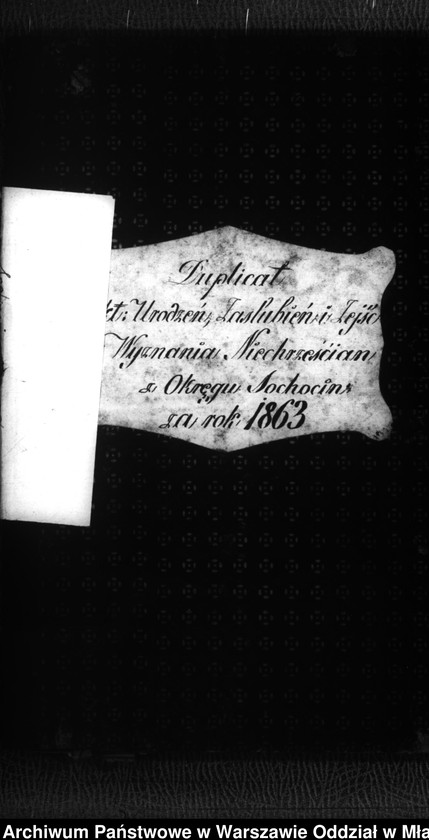 Duplicat
kt: Urodzeń, Zaslubień i Zejśc
Wyznania Niechrześcian
z Okręgu Sochocin
za rok 1863
Archiwum Państwowe w Warszawie Oddział w Mła